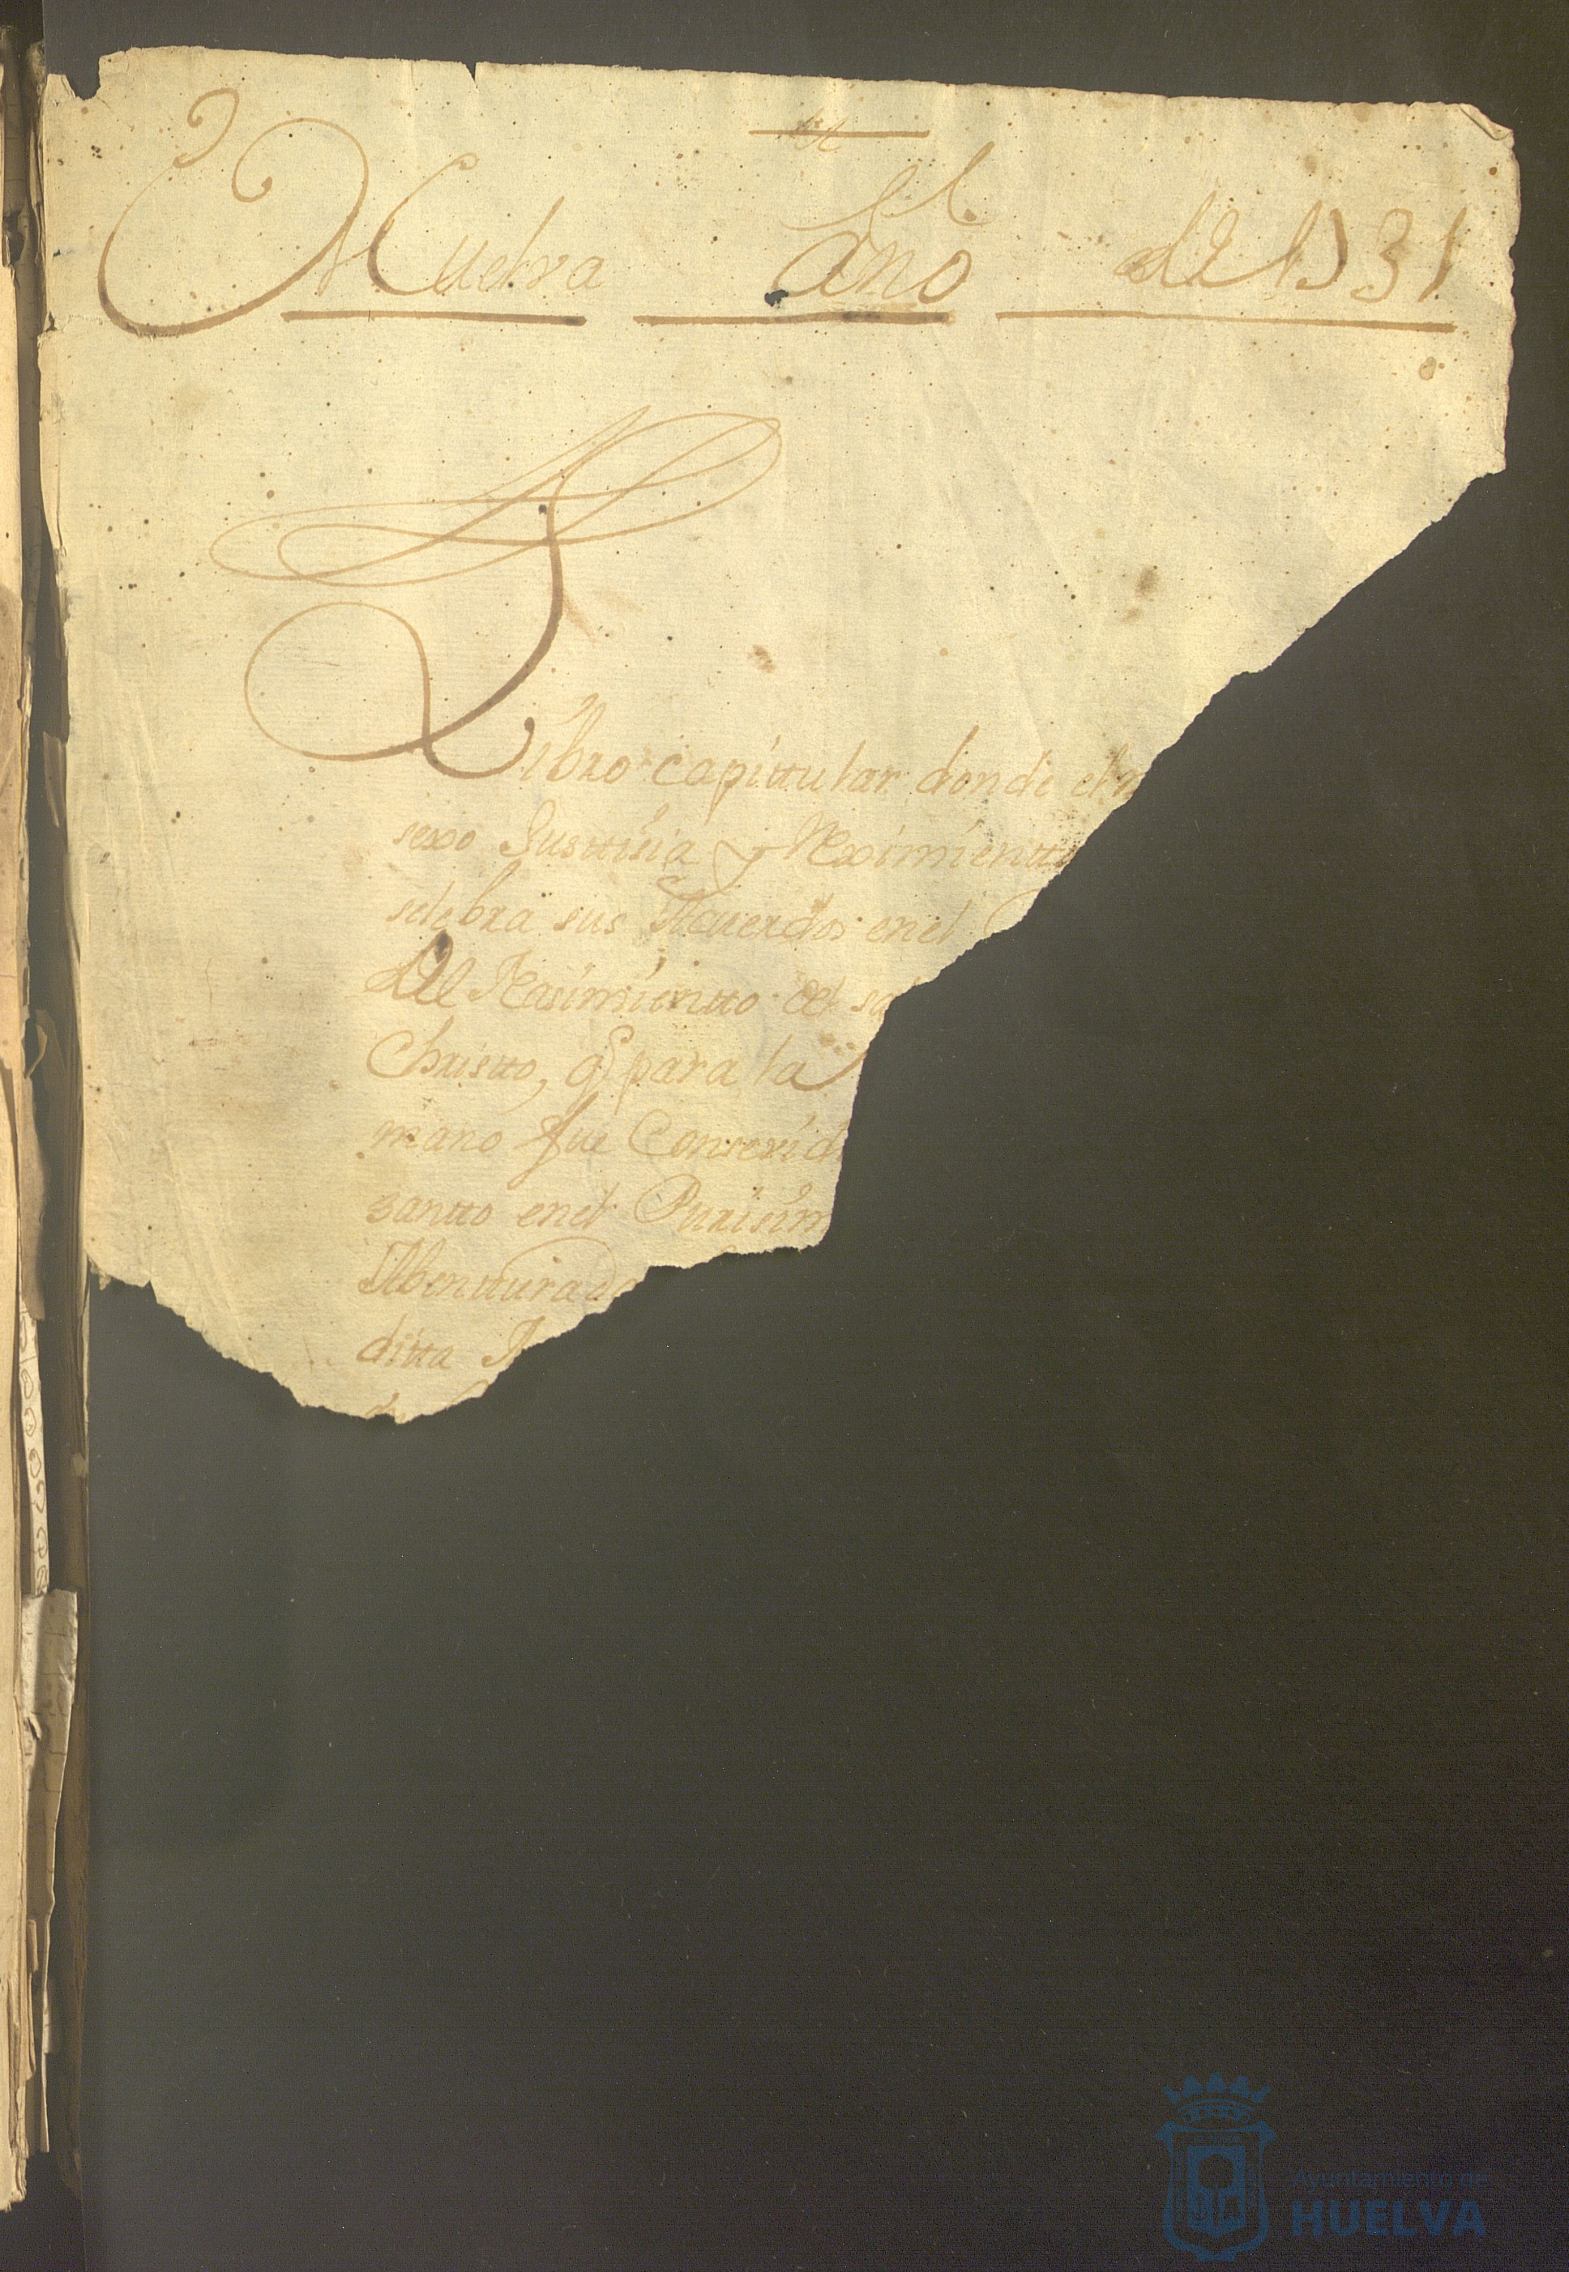 Huelva Año de 1731
Libro capittular donde el
sexo Justtisia y Reximientto
selebra sus Acuerdos en el
Del Nasimientto del sal
Christto, q para la
mano fue Consevid
santto en el Purisim
Abentturado
ditta
Ayuntamiento de
HUELVA